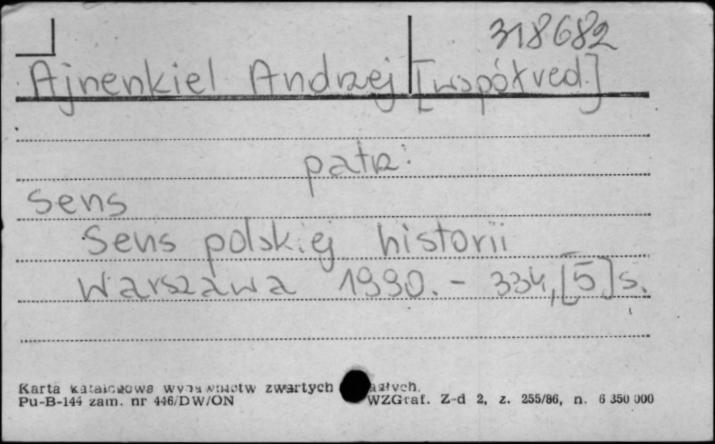 318682
Ajnenkiel Andrzej [współred.]
patrz:
Sens
Sens polskiej historii
Warszawa 1990. - 334, [5] s.
Karta katalogowa wydawnictw zwartych
Pu-B-144 zam. nr 446/DW/ON WZGraf. Z-d 2, z. 255/86, n. 6 350 000